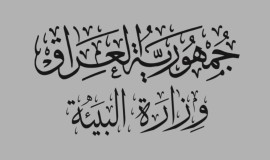 جُمْهُورِيَّةُ العِرَاق
وزارة البيئة